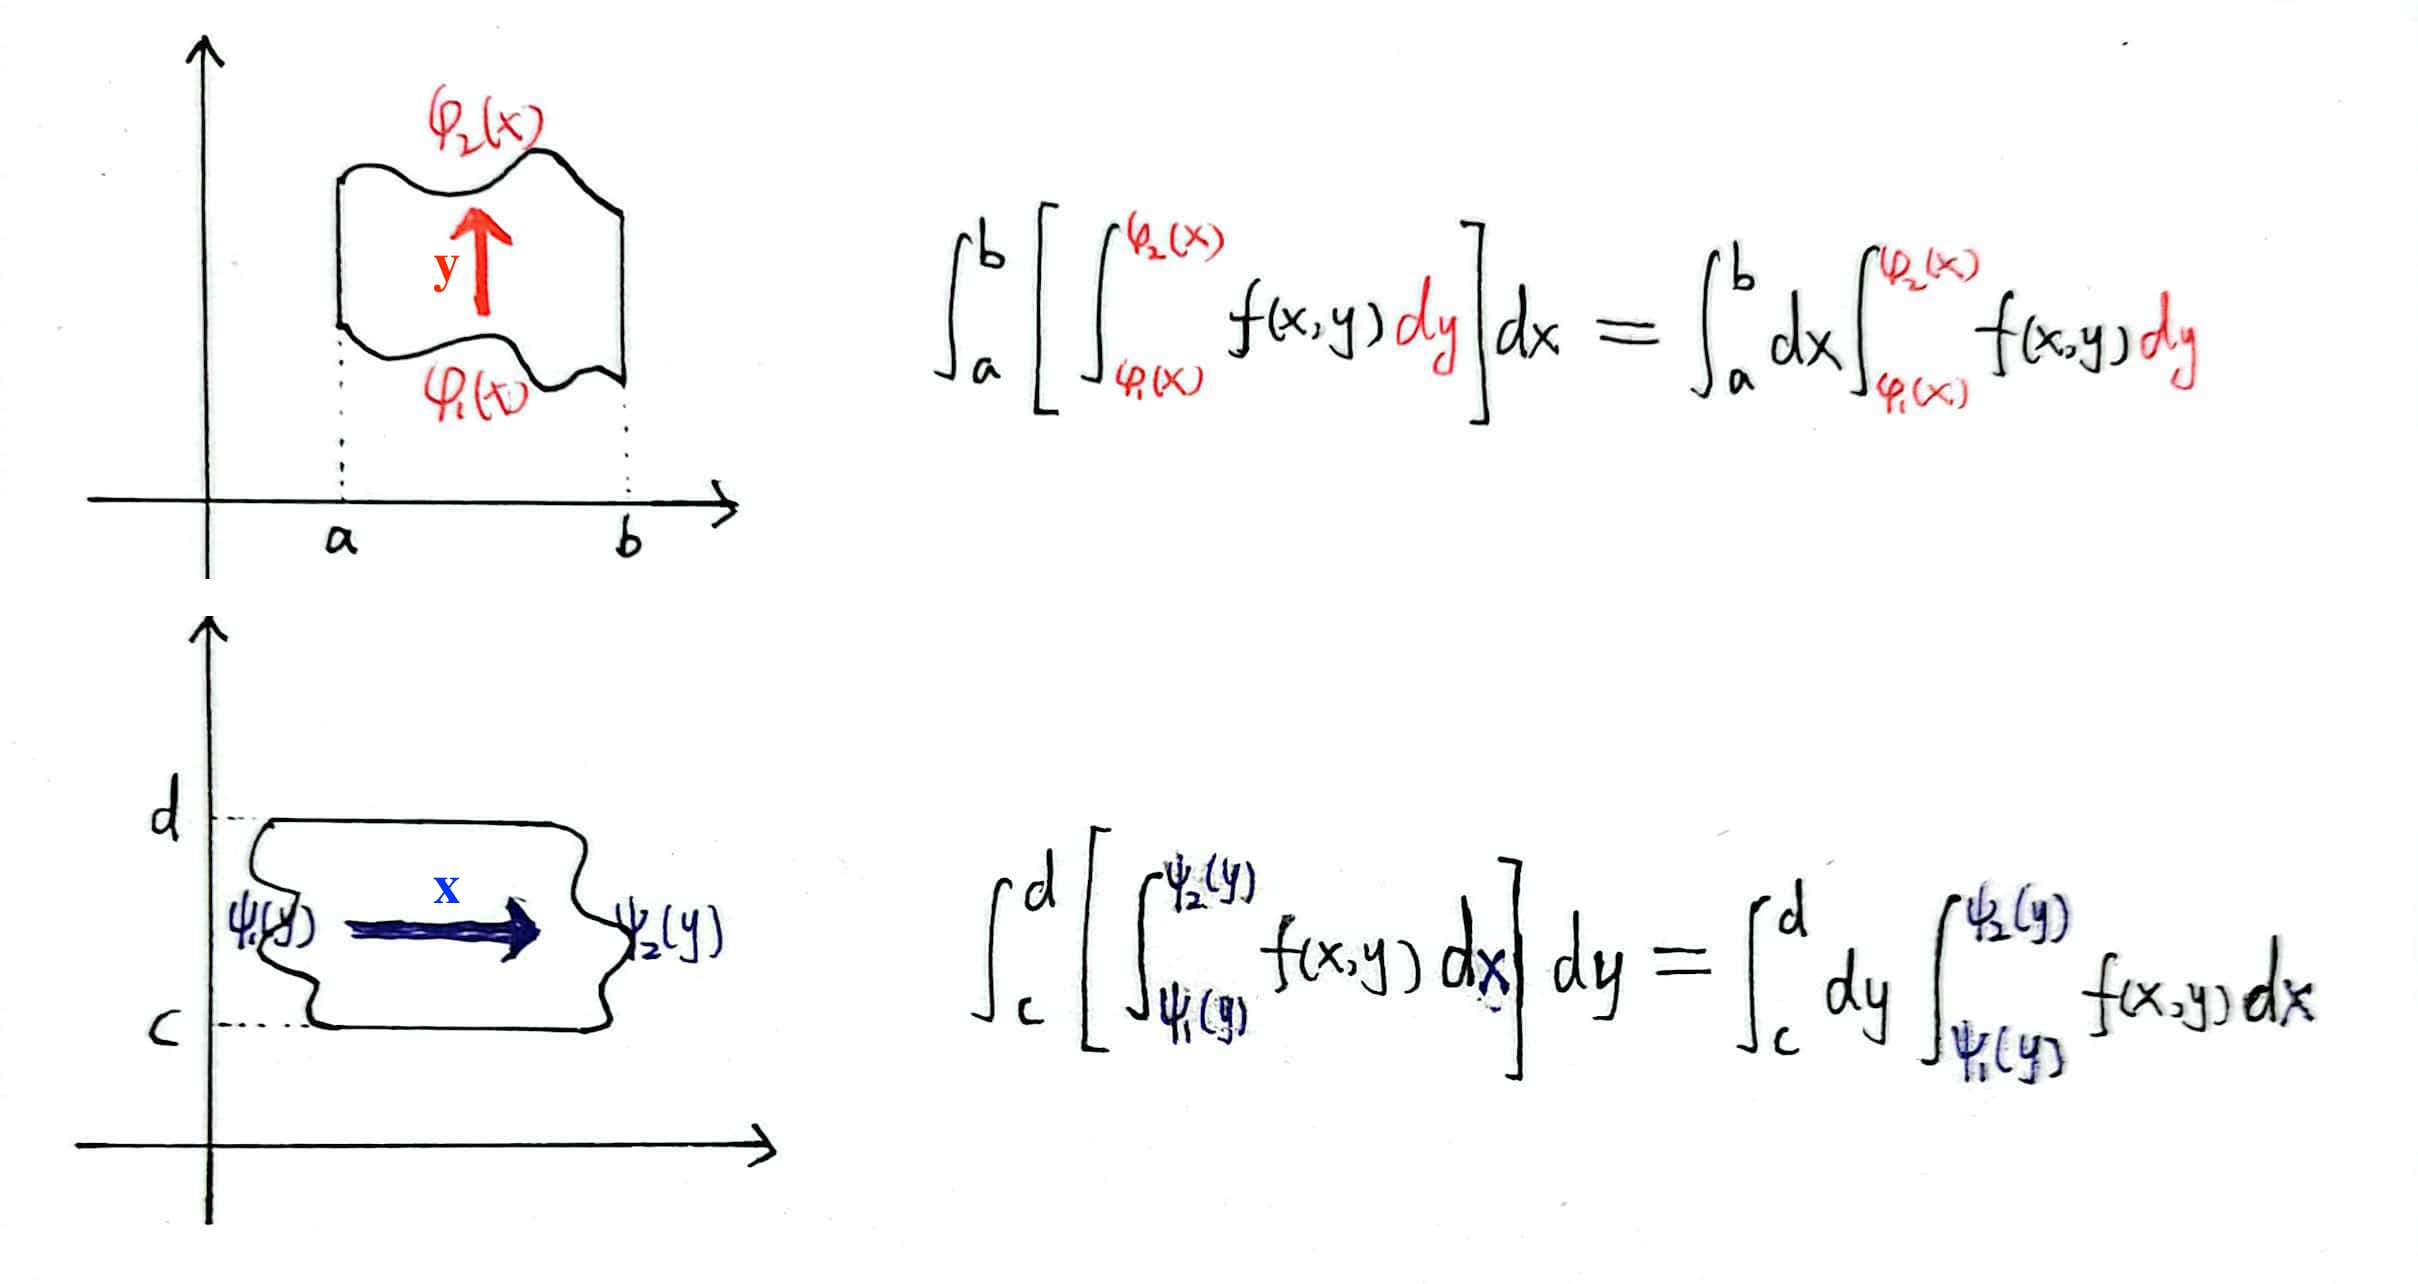 φ₂(x)
y
φ₁(x)
a b
∫ₐᵇ [ ∫_{φ₁(x)}^{φ₂(x)} f(x,y) dy ] dx = ∫ₐᵇ dx ∫_{φ₁(x)}^{φ₂(x)} f(x,y) dy
d
x
ψ₁(y) ψ₂(y)
c
∫_c^d [ ∫_{ψ₁(y)}^{ψ₂(y)} f(x,y) dx ] dy = ∫_c^d dy ∫_{ψ₁(y)}^{ψ₂(y)} f(x,y) dx